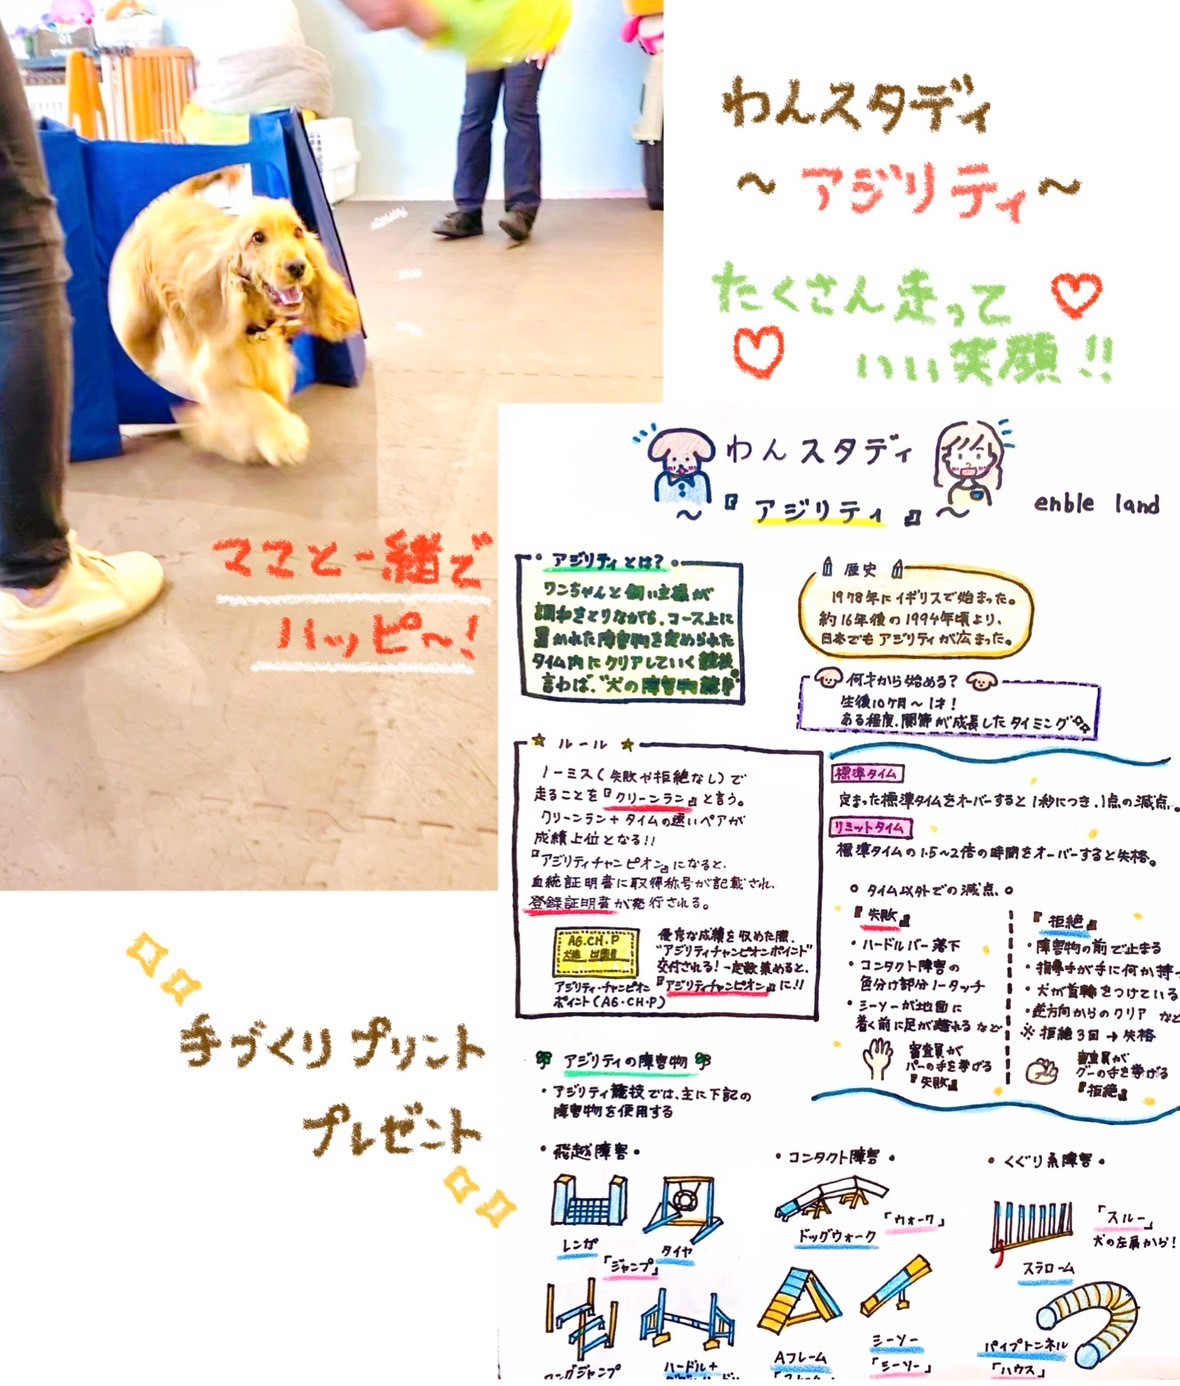 わんスタディ
～アジリティ～
たくさん走って
いい笑顔!!
ママと一緒で
ハッピ～!
手づくりプリント
プレゼント
わんスタディ
～『アジリティ』～
enble land
アジリティとは?
ワンちゃんと飼い主様が
調和をとりながら、コース上に
置かれた障害物を定められた
タイム内にクリアしていく競技
言わば、"犬の障害物競争"
歴史
1978年にイギリスで始まった。
約16年後の1994年頃より、
日本でもアジリティが広まった。
何才から始める?
生後10ヶ月～1才!
ある程度、関節が成長したタイミング
ルール
ノーミス(失敗や拒絶なし)で
走ることを『クリーンラン』と言う。
クリーンラン+タイムの速いペアが
成績上位となる!!
『アジリティチャンピオン』になると、
血統証明書に取得称号が記載され、
登録証明書が発行される。
AG.CH.P
アジリティ・チャンピオン
ポイント(AG・CH・P)
優秀な成績を収めた際、
"アジリティチャンピオンポイント"
交付される!一定数集めると、
『アジリティチャンピオン』に!!
標準タイム
定まった標準タイムをオーバーすると1秒につき、1点の減点。
リミットタイム
標準タイムの1.5～2倍の時間をオーバーすると失格。
タイム以外での減点
『失敗』
・ハードルバー落下
・コンタクト障害の
色分け部分ノータッチ
・シーソーが地面に
着く前に足が離れる など
審査員が
パーの手を挙げる
『失敗』
『拒絶』
・障害物の前で止まる
・指導手が手に何か持っ
・犬が首輪をつけている
・逆方向からのクリア など
※拒絶3回→失格
審査員が
グーの手を挙げる
『拒絶』
アジリティの障害物
・アジリティ競技では、主に下記の
障害物を使用する
・飛越障害・
レンガ
タイヤ
「ジャンプ」
ロングジャンプ
ハードル+
・コンタクト障害・
ドッグウォーク
「ウォーク」
Aフレーム
シーソー
「シーソー」
・くぐり系障害・
「スルー」
犬の左肩から!
スラローム
パイプトンネル
「ハウス」